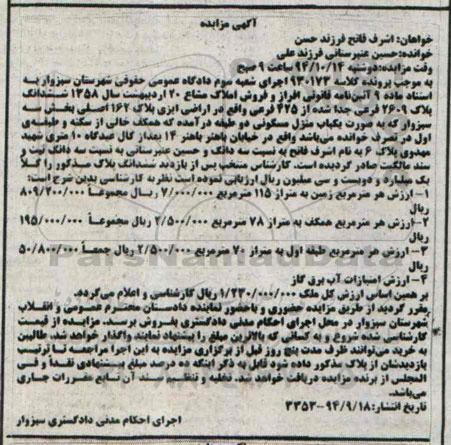 آگهی مزایده
خواهان: اشرف فاتح فرزند حسن
خوانده: حسین عنبرستانی فرزند علی
وقت مزایده: دوشنبه ۹۴/۱۰/۱۴ ساعت ۹ صبح
به موجب پرونده کلاسه ۹۳۰۱۷۳ اجرای شعبه سوم دادگاه عمومی حقوقی شهرستان سبزوار به
استناد ماده ۹ آئین‌نامه قانونی افراز و فروش املاک مشاع ۲۰ اردیبهشت سال ۱۳۵۸ ششدانگ
پلاک ۲۶۰۹ فرعی جدا شده از ۴۲۵ فرعی واقع در اراضی ابزی پلاک ۱۶۲ اصلی بخش سه
سبزوار که به صورت یکباب منزل مسکونی دو طبقه درآمده که همکف خالی از سکنه و طبقه‌ی
اول در تصرف خوانده می‌باشد واقع در خیابان باهنر باهنر ۱۴ بعداز کال عیدگاه ۱۰ متری شهید
مهدوی پلاک ۶ به نام اشرف فاتح به نسبت سه دانگ و حسین عنبرستانی به نسبت سه دانگ ثبت و
سند مالکیت صادر گردیده است. کارشناس منتخب پس از بازدید ششدانگ پلاک مذکور را کلاً
یک میلیارد و دویست و سی میلیون ریال ارزیابی نموده است نظریه کارشناسی بدین شرح است:
۱- ارزش هر مترمربع زمین به متراژ ۱۱۵ مترمربع ۷/۰۰۰/۰۰۰ ریال مجموعاً ۸۰۹/۲۰۰/۰۰۰
ریال
۲- ارزش هر مترمربع همکف به متراژ ۷۸ مترمربع ۲/۵۰۰/۰۰۰ ریال مجموعاً ۱۹۵/۰۰۰/۰۰۰
ریال
۳- ارزش هر مترمربع طبقه اول به متراژ ۷۰ مترمربع ۲/۵۰۰/۰۰۰ ریال جمعاً ۵۰/۸۰۰/۰۰۰
ریال
۴- ارزش امتیازات آب برق گاز
بر همین اساس ارزش کل ملک ۱/۲۳۰/۰۰۰/۰۰۰ ریال کارشناسی و اعلام می‌گردد.
مقرر گردید از طریق مزایده حضوری و باحضور نماینده دادستان محترم عمومی و انقلاب
شهرستان سبزوار در محل اجرای احکام مدنی دادگستری بفروش برسد. مزایده از قیمت
کارشناسی شده شروع و به کسانی که بالاترین مبلغ را پیشنهاد نمایند واگذار خواهد شد. طالبین
به خرید می‌توانند ظرف مدت پنج روز قبل از برگزاری مزایده به این اجرا مراجعه تا ترتیب
بازدیدشان از پلاک مذکور داده شود قابل به ذکر اینکه ده درصد مبلغ پیشنهادی نقداً و فی
المجلس از برنده مزایده دریافت خواهد شد. تخلیه و تنظیم سند آن تابع مقررات جاری
می‌باشد.
تاریخ انتشار: ۹۴/۹/۱۸-۳۳۵۳
اجرای احکام مدنی دادگستری سبزوار
ParsNamadData